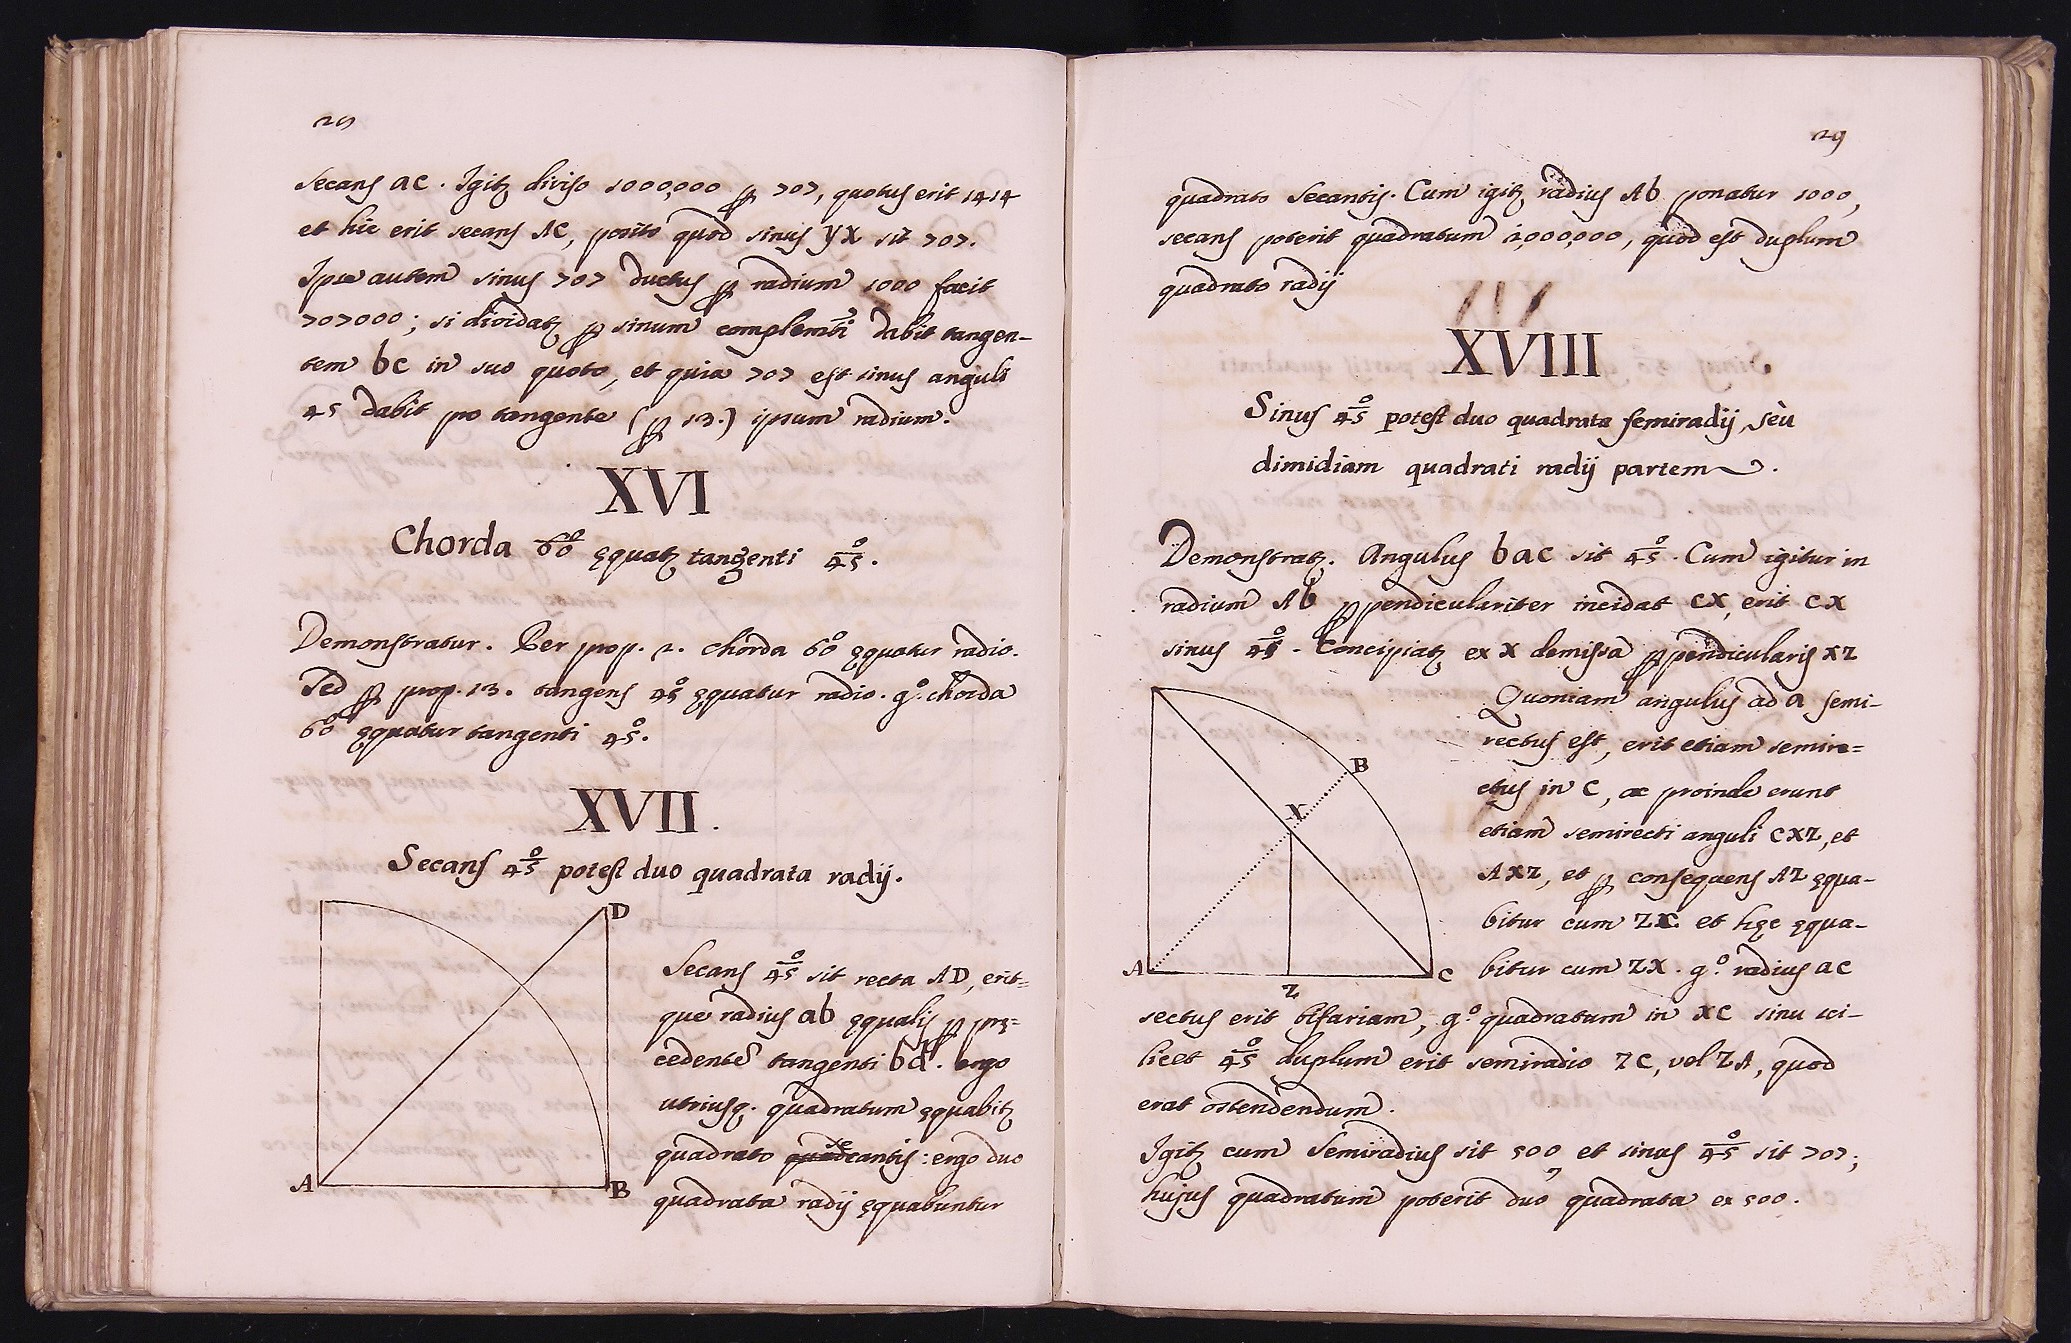 secans ac. Igitʒ diviso 1000,000 ꝑ 707, quotus erit 1414
et hic erit secans AC, posito quod sinus yx sit 707.
Ipse autem sinus 707 ductus ꝑ radium 1000 facit
707000; si dividatʒ ꝑ sinum complemti dabit tangen-
tem bc in suo quoto, et quia 707 est sinus anguli
45 dabit pro tangente (ꝑ 13.) ipsum radium.
XVI
Chorda 60° ęquatʒ tangenti 45°.
Demonstratur. Per prop. 2. chorda 60° ęquatur radio.
Sed ꝑ prop. 13. tangens 45° ęquatur radio. g°. chorda
60° ęquatur tangenti 45°.
XVII.
Secans 45° potest duo quadrata radij.
D
Secans 45° sit recta AD, erit=
que radius ab ęqualis ꝑ prę=
cedente tangenti bd. ergo
utriusq. quadratum ęquabitʒ
quadrato secantis: ergo duo
quadrata radij ęquabuntur
A B
29
quadrato secantis. Cum igitʒ radius Ab ponatur 1000,
secans poterit quadratum 2,000,000, quod est duplum
quadrato radij
XVIII
Sinus 45° potest duo quadrata semiradij, sèu
dimidiam quadrati radij partem.
Demonstratʒ. Angulus bac sit 45°. Cum igitur in
radium Ab ꝑpendiculariter incidat cx, erit cx
sinus 45°. Concipiatʒ ex x demissa ꝑpendicularis xz
Quoniam angulus ad a semi-
rectus est, erit etiam semire=
ctus in c, ac proinde erunt
etiam semirecti anguli cxz, et
Axz, et ꝑ consequens Az ęqua-
bitur cum zc. et hęc ęqua-
bitur cum zx. g°. radius ac
B
X
A Z C
sectus erit bifariam, g°. quadratum in xc sinu sci-
licet 45° duplum erit semiradio zc, vel zA, quod
erat ostendendum.
Igitʒ cum semiradius sit 500, et sinus 45° sit 707;
hujus quadratum poterit duo quadrata ex 500.